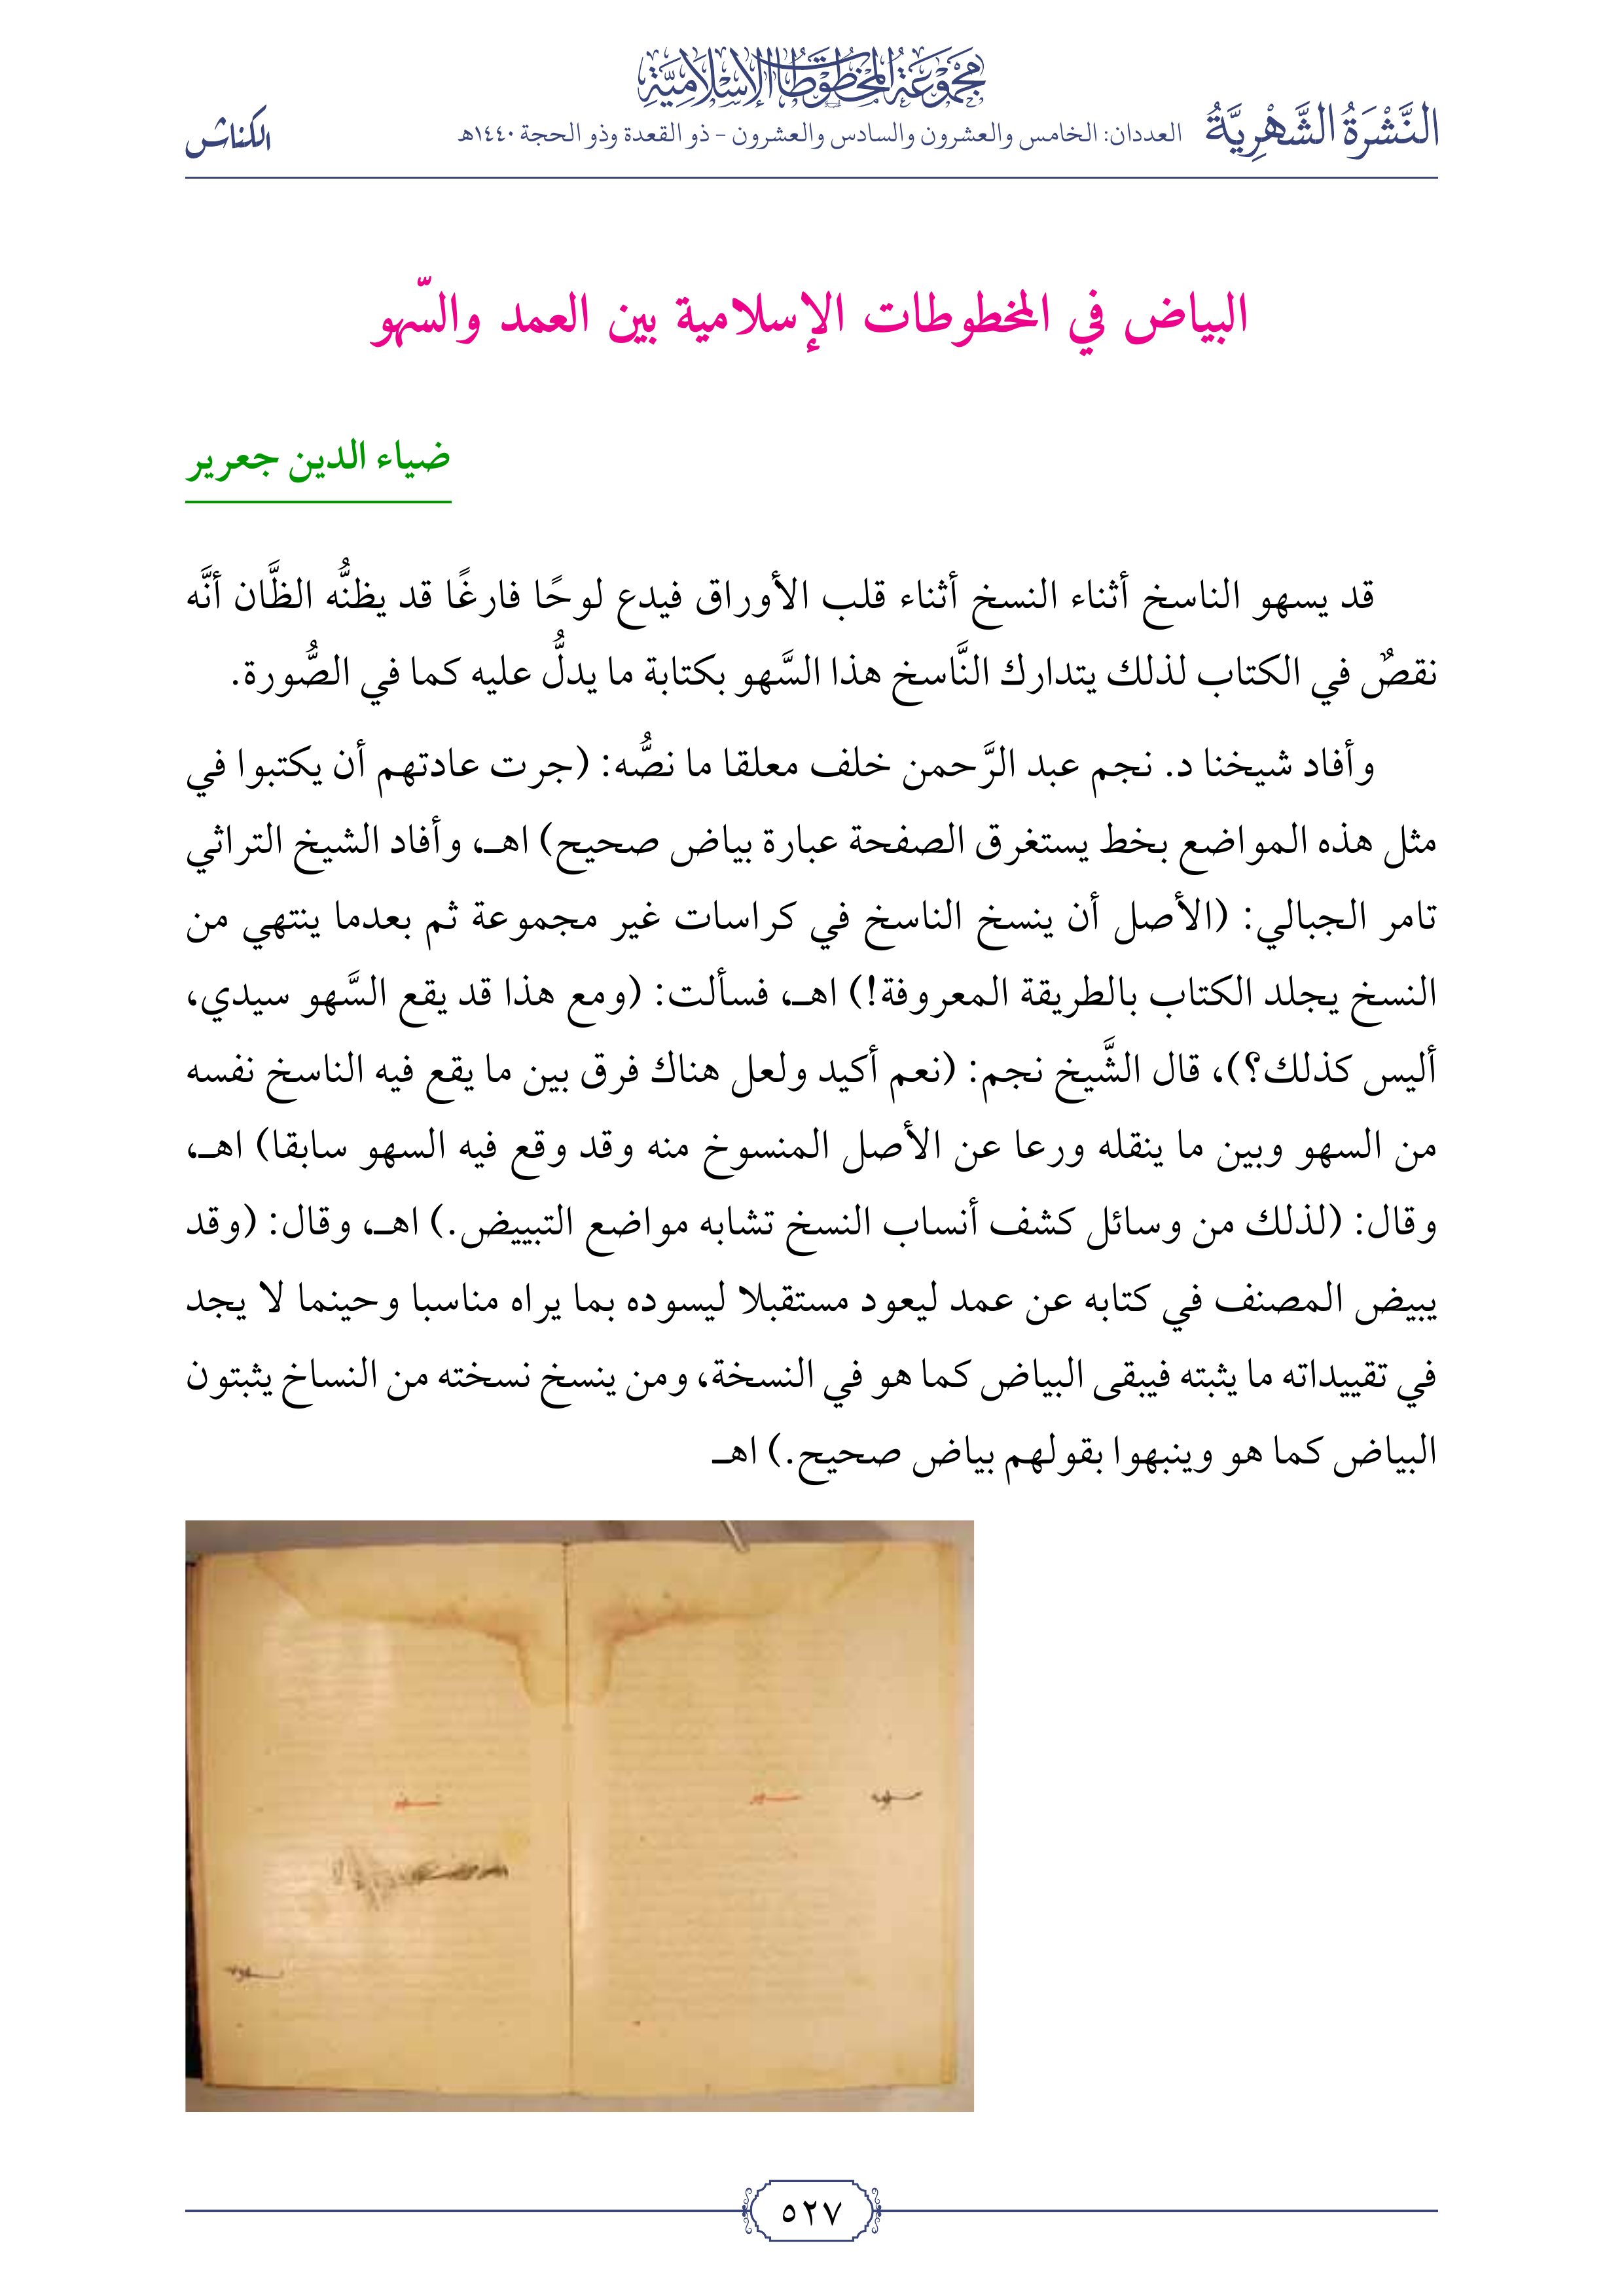 مجموعة المخطوطات الإسلامية
النَّشْرَةُ الشَّهْرِيَّةُ العددان: الخامس والعشرون والسادس والعشرون - ذو القعدة وذو الحجة ١٤٤٠هـ الكناش
البياض في المخطوطات الإسلامية بين العمد والسّهو
ضياء الدين جعرير
قد يسهو الناسخ أثناء النسخ أثناء قلب الأوراق فيدع لوحًا فارغًا قد يظنُّه الظَّان أنَّه
نقصٌ في الكتاب لذلك يتدارك النَّاسخ هذا السَّهو بكتابة ما يدلُّ عليه كما في الصُّورة.
وأفاد شيخنا د. نجم عبد الرَّحمن خلف معلقا ما نصُّه: (جرت عادتهم أن يكتبوا في
مثل هذه المواضع بخط يستغرق الصفحة عبارة بياض صحيح) اهـ، وأفاد الشيخ التراثي
تامر الجبالي: (الأصل أن ينسخ الناسخ في كراسات غير مجموعة ثم بعدما ينتهي من
النسخ يجلد الكتاب بالطريقة المعروفة!) اهـ، فسألت: (ومع هذا قد يقع السَّهو سيدي،
أليس كذلك؟)، قال الشَّيخ نجم: (نعم أكيد ولعل هناك فرق بين ما يقع فيه الناسخ نفسه
من السهو وبين ما ينقله ورعا عن الأصل المنسوخ منه وقد وقع فيه السهو سابقا) اهـ،
وقال: (لذلك من وسائل كشف أنساب النسخ تشابه مواضع التبييض.) اهـ، وقال: (وقد
يبيض المصنف في كتابه عن عمد ليعود مستقبلا ليسوده بما يراه مناسبا وحينما لا يجد
في تقييداته ما يثبته فيبقى البياض كما هو في النسخة، ومن ينسخ نسخته من النساخ يثبتون
البياض كما هو وينبهوا بقولهم بياض صحيح.) اهـ
٥٢٧